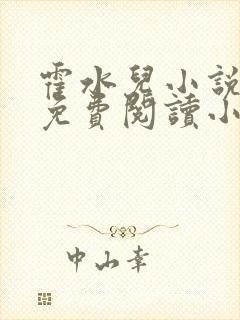 霍水兒小說
免費閱讀小
中山幸